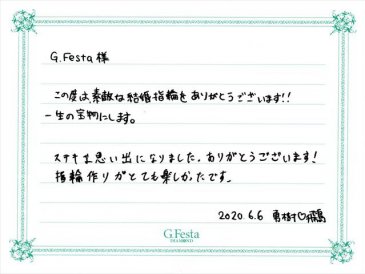 G.Festa 様
この度は素敵な結婚指輪をありがとうございます!!
一生の宝物にします。
ステキな思い出になりました。ありがとうございます!
指輪作りがとても楽しかったです。
2020.6.6 勇樹♡
G.Festa
DIAMOND